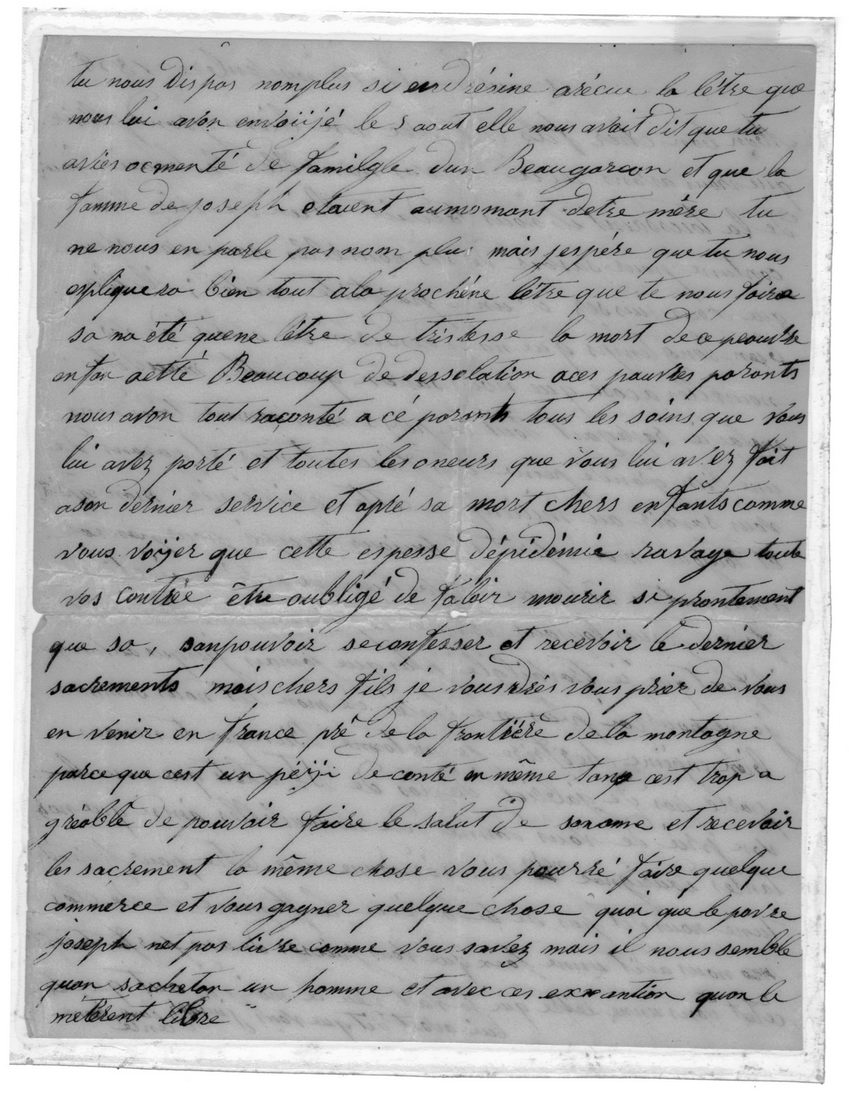 tu nous dis pas nomplus si endrésine arécue la létre que
nous lui avon envoiijé le 5 aout elle nous avait dit que tu
aviés ocmenté de familgle dun Beaugarcon et que la
famme de joseph etaient aumomant detre mére tu
ne nous en parle pas nom plus mais jespére que tu nous
expliquera bien tout ala prochéne létre que te nous faira
sa na été quene létre de tristesse la mort de ce peauvre
enfan aetté Beaucoup de dessolation aces pauvres parants
nous avon tout raconté a cé parants tous les soins que vous
lui avez porté et toutes les oneurs que vous lui avez fait
ason dernier service et apré sa mort chers enfants comme
vous voijer que cette espesse dépidémie ravage toute
vos contrée être oubligé de faloir mourir si prontement
que sa, sanpouvoir seconfesser et recevoir le dernier
sacrements mais chers fils je vousdrés vous prier de vous
en venir en france pré de la frontiére de la montagne
parce que cest un péiji de conté en même tans cest trop a
gréable de pouvoir faire le salut de sonome et recevoir
les sacrement la même chose vous pourré faire quelque
commerce et vous gagner quelque chose quoi que le povre
joseph net pas livre comme vous savez mais il nous semble
quan sacheton un homme et avec ces exxantion quon le
meterent libre